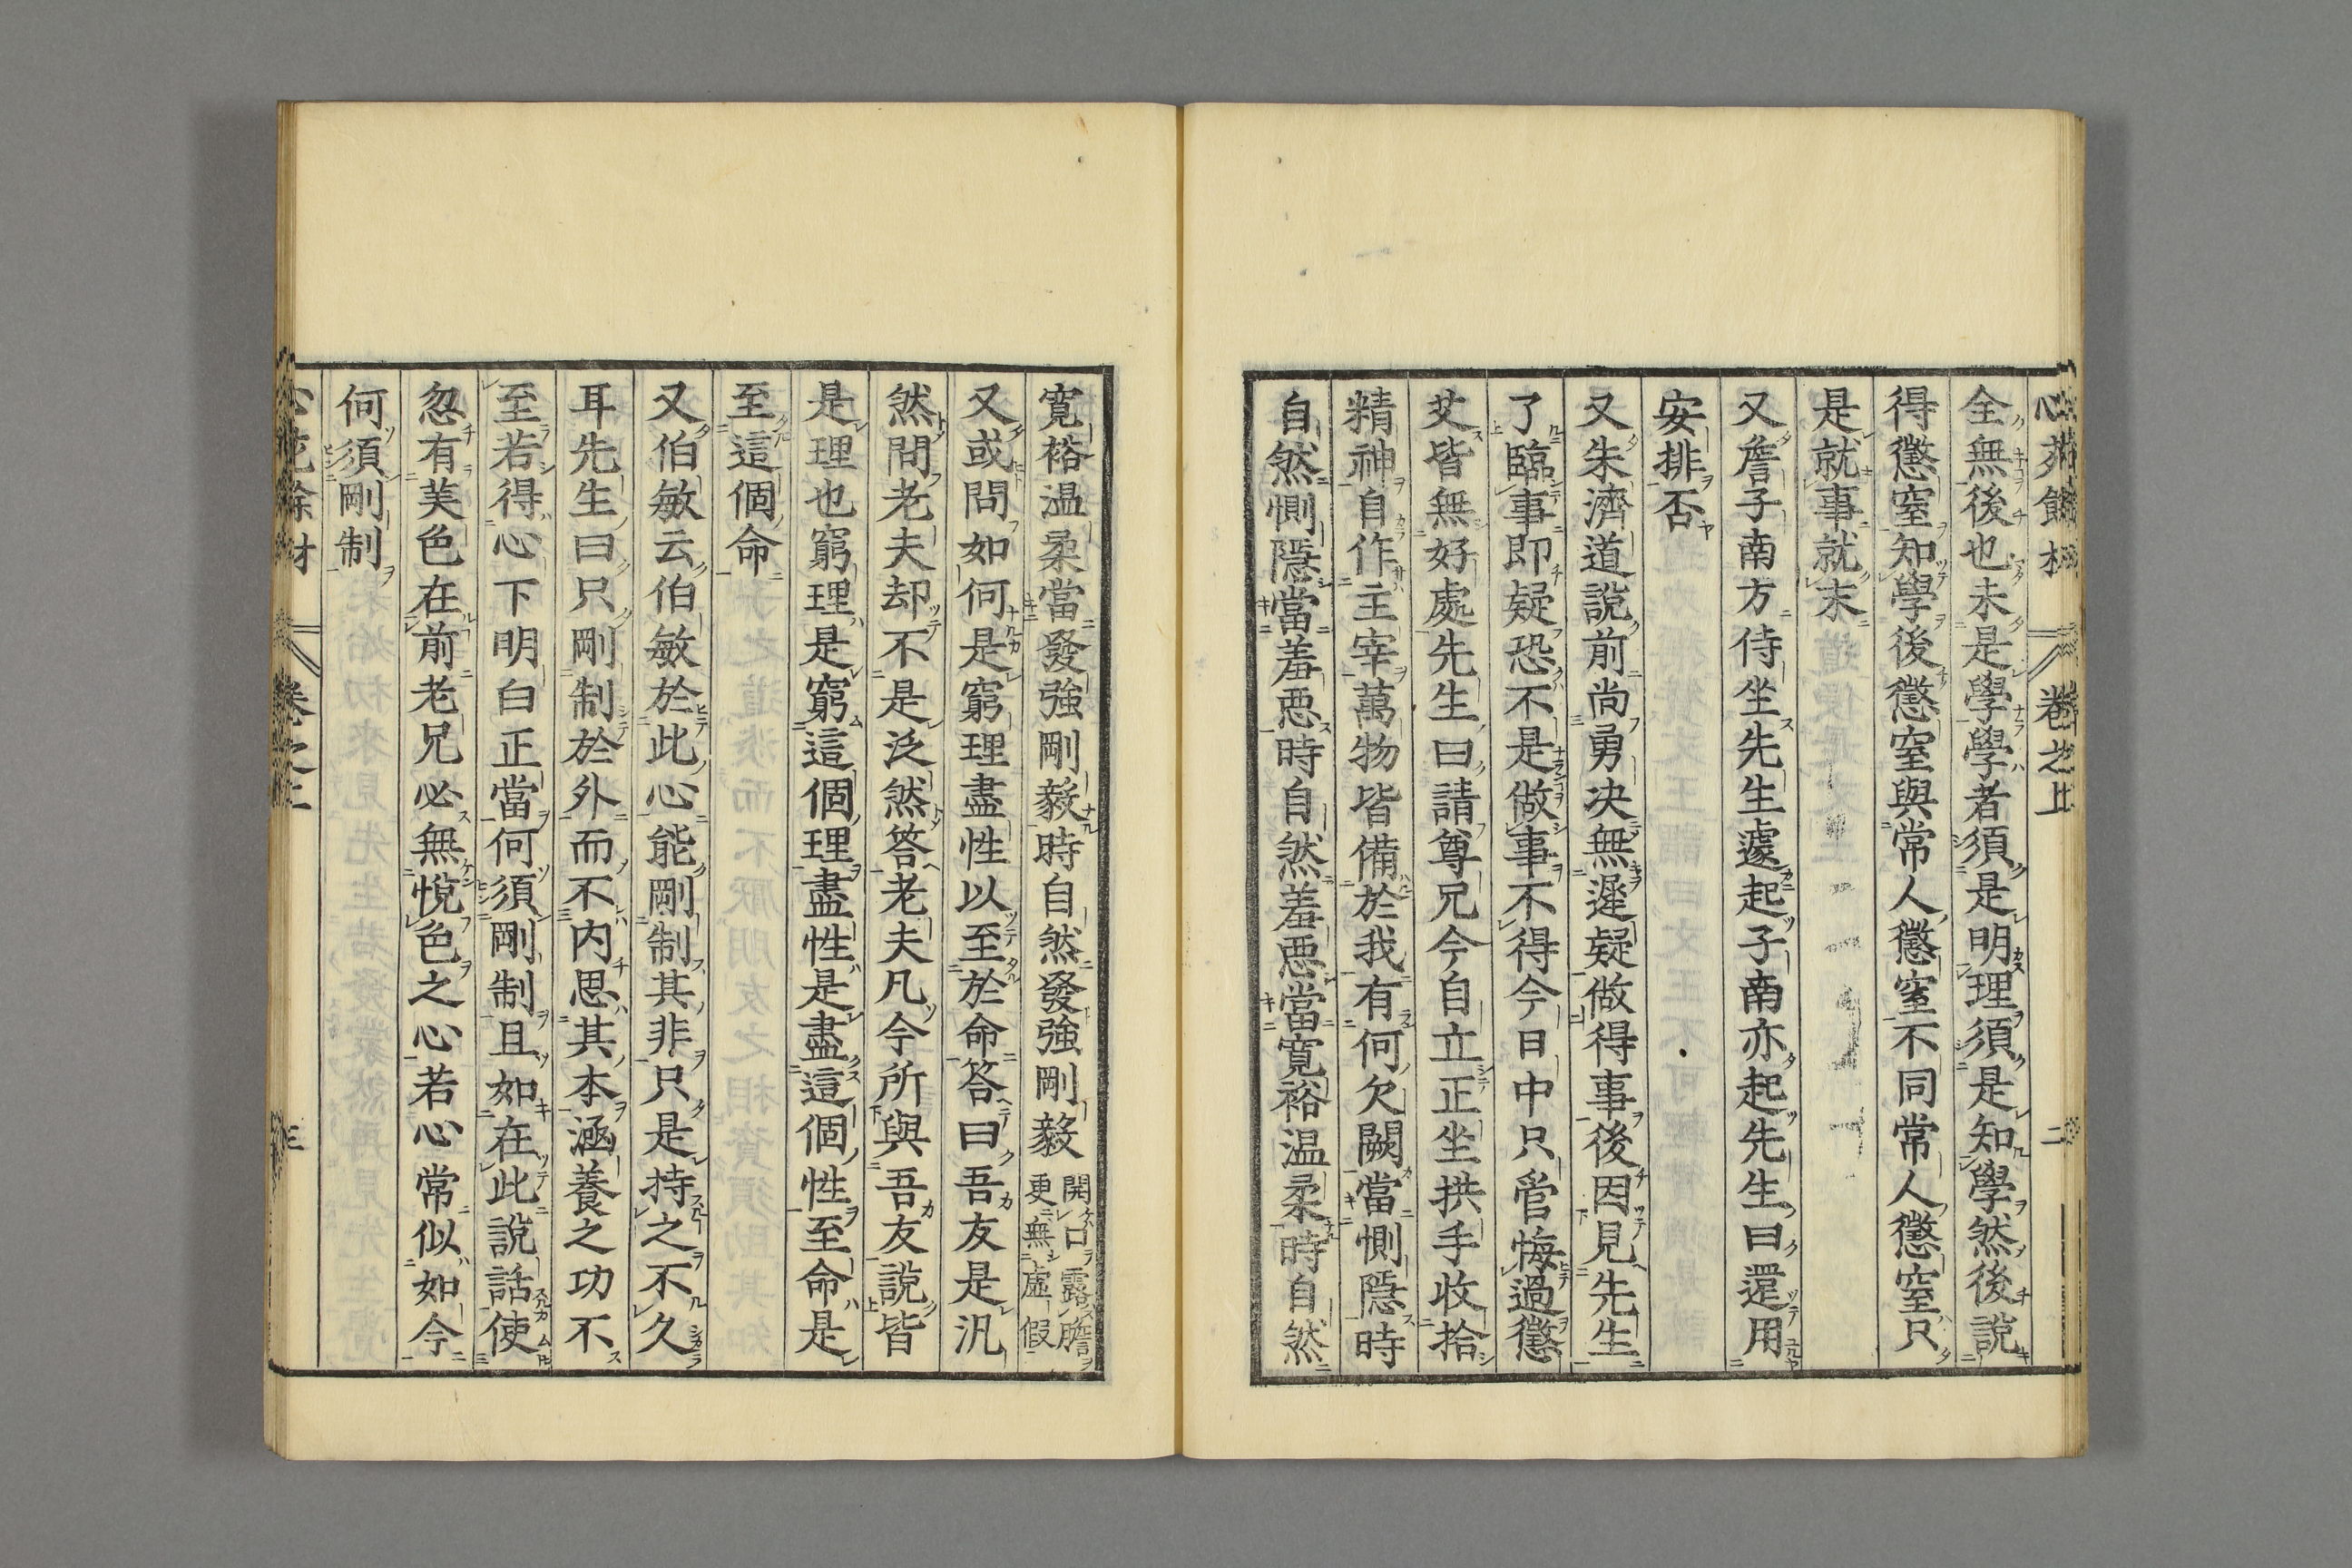 全無後也未是學學者須是明理須是知學然後說
得懲窒知學後懲窒與常人懲窒不同常人懲窒只
是就事就末
又詹子南方侍坐先生遽起子南亦起先生曰還用
安排否
又朱濟道說前尚勇决無遲疑做得事後因見先生
了臨事即疑恐不是做事不得今日中只管悔過懲
艾皆無好處先生曰請尊兄今自立正坐拱手收拾
精神自作主宰萬物皆備於我有何欠闕當惻隱時
自然惻隱當羞惡時自然羞惡當寬裕温柔時自然
寬裕温柔當發強剛毅時自然發強剛毅開口露膽更無虛假
又或問如何是窮理盡性以至於命答曰吾友是汎
然問老夫却不是泛然答老夫凡今所與吾友說皆
是理也窮理是窮這個理盡性是盡這個性至命是
至這個命
又伯敏云伯敏於此心能剛制其非只是持之不久
耳先生曰只剛制於外而不内思其本涵養之功不
至若得心下明白正當何須剛制且如在此說話使
忽有美色在前老兄必無悅色之心若心常似如今
何須剛制
卷之上
二
三